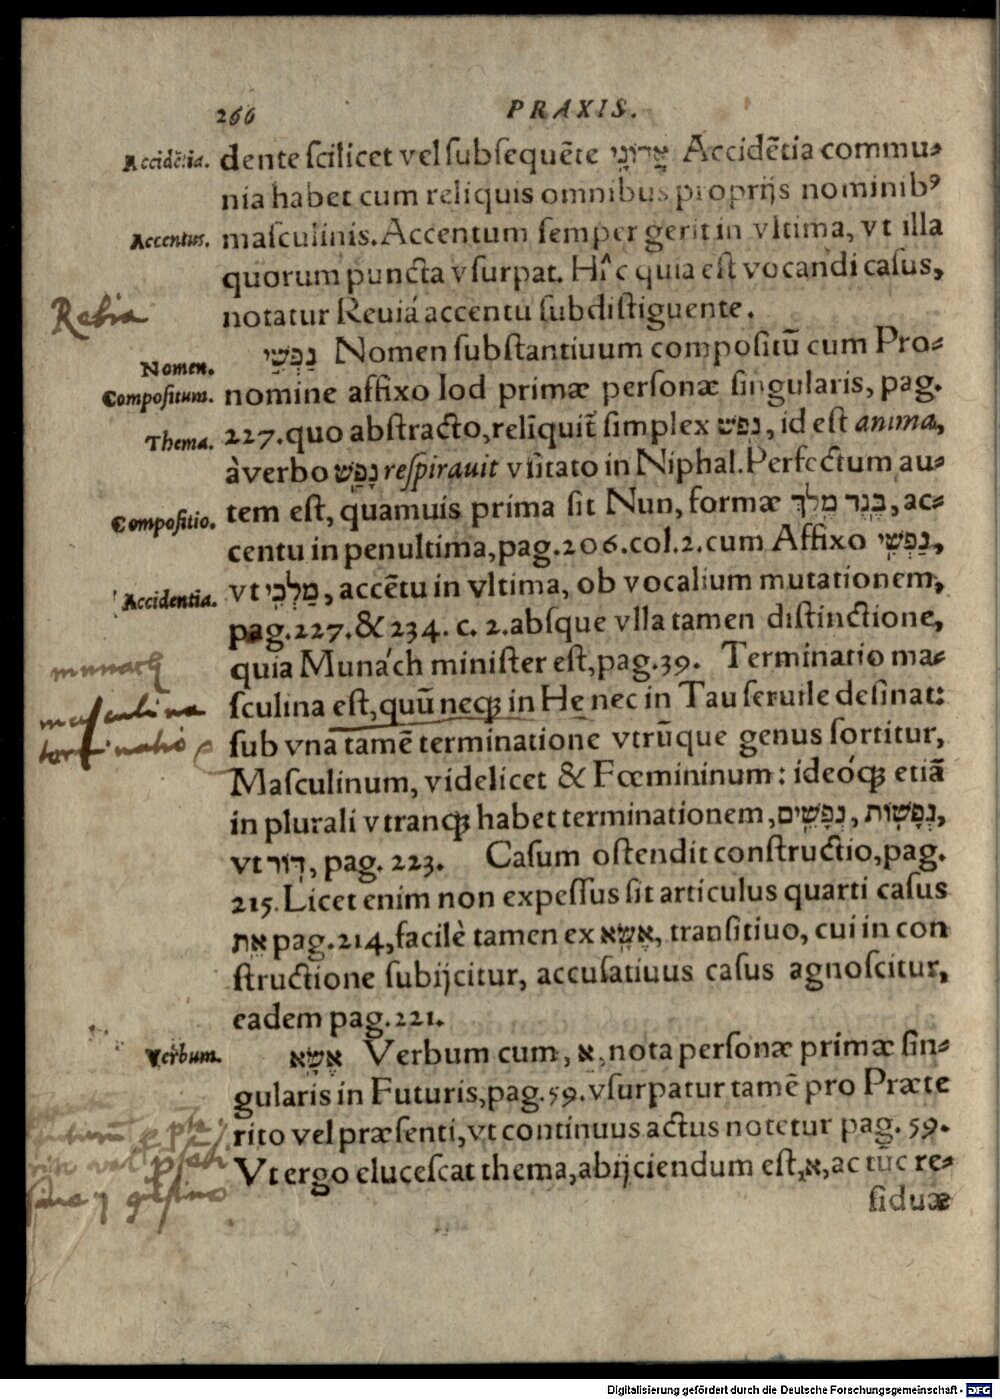 266 PRAXIS.
Accidētia. dente scilicet vel subsequēte אֲדוֹנָי Accidētia commu-
nia habet cum reliquis omnibus proprijs nominibꝰ
Accentus. masculinis. Accentum semper gerit in vltima, vt illa
quorum puncta vsurpat. Hîc quia est vocandi casus,
Rebia
notatur Reuiá accentu subdistiguente.
Nomen. נַפְשִׁי Nomen substantiuum compositū cum Pro-
Compositum. nomine affixo Iod primæ personæ singularis, pag.
Thema. 227. quo abstracto, reliquit simplex נֶפֶשׁ, id est anima,
à verbo נָפַשׁ respirauit vsitato in Niphal. Perfectum au-
Compositio. tem est, quamuis prima sit Nun, formæ בֶּגֶד מֶלֶךְ, ac-
centu in penultima, pag. 206. col. 2. cum Affixo נַפְשִׁי,
Accidentia. vt מַלְכִּי, accētu in vltima, ob vocalium mutationem,
pag. 227. & 234. c. 2. absque vlla tamen distinctione,
quia Munách minister est, pag. 39. Terminatio ma-
munach
sculina est, quū neqꝫ in He nec in Tau seruile desinat:
masculina
terminatio
sub vna tamē terminatione vtrūque genus sortitur,
Masculinum, videlicet & Fœmininum: ideóqꝫ etiā
in plurali vtranqꝫ habet terminationem, נְפָשִׁים, נְפָשׁוֹת,
vt דּוֹר, pag. 223. Casum ostendit constructio, pag.
215. Licet enim non expessus sit articulus quarti casus
אֵת pag. 214, facilè tamen ex אֶשָּׂא, transitiuo, cui in con
structione subijcitur, accusatiuus casus agnoscitur,
eadem pag. 221.
Verbum. אֶשָּׂא Verbum cum, א, nota personæ primæ sin-
gularis in Futuris, pag. 59. vsurpatur tamē pro Præte
rito vel præsenti, vt continuus actus notetur pag. 59.
Vt ergo elucescat thema, abijciendum est, א, ac tūc re-
siduæ
Digitalisierung gefördert durch die Deutsche Forschungsgemeinschaft - DFG